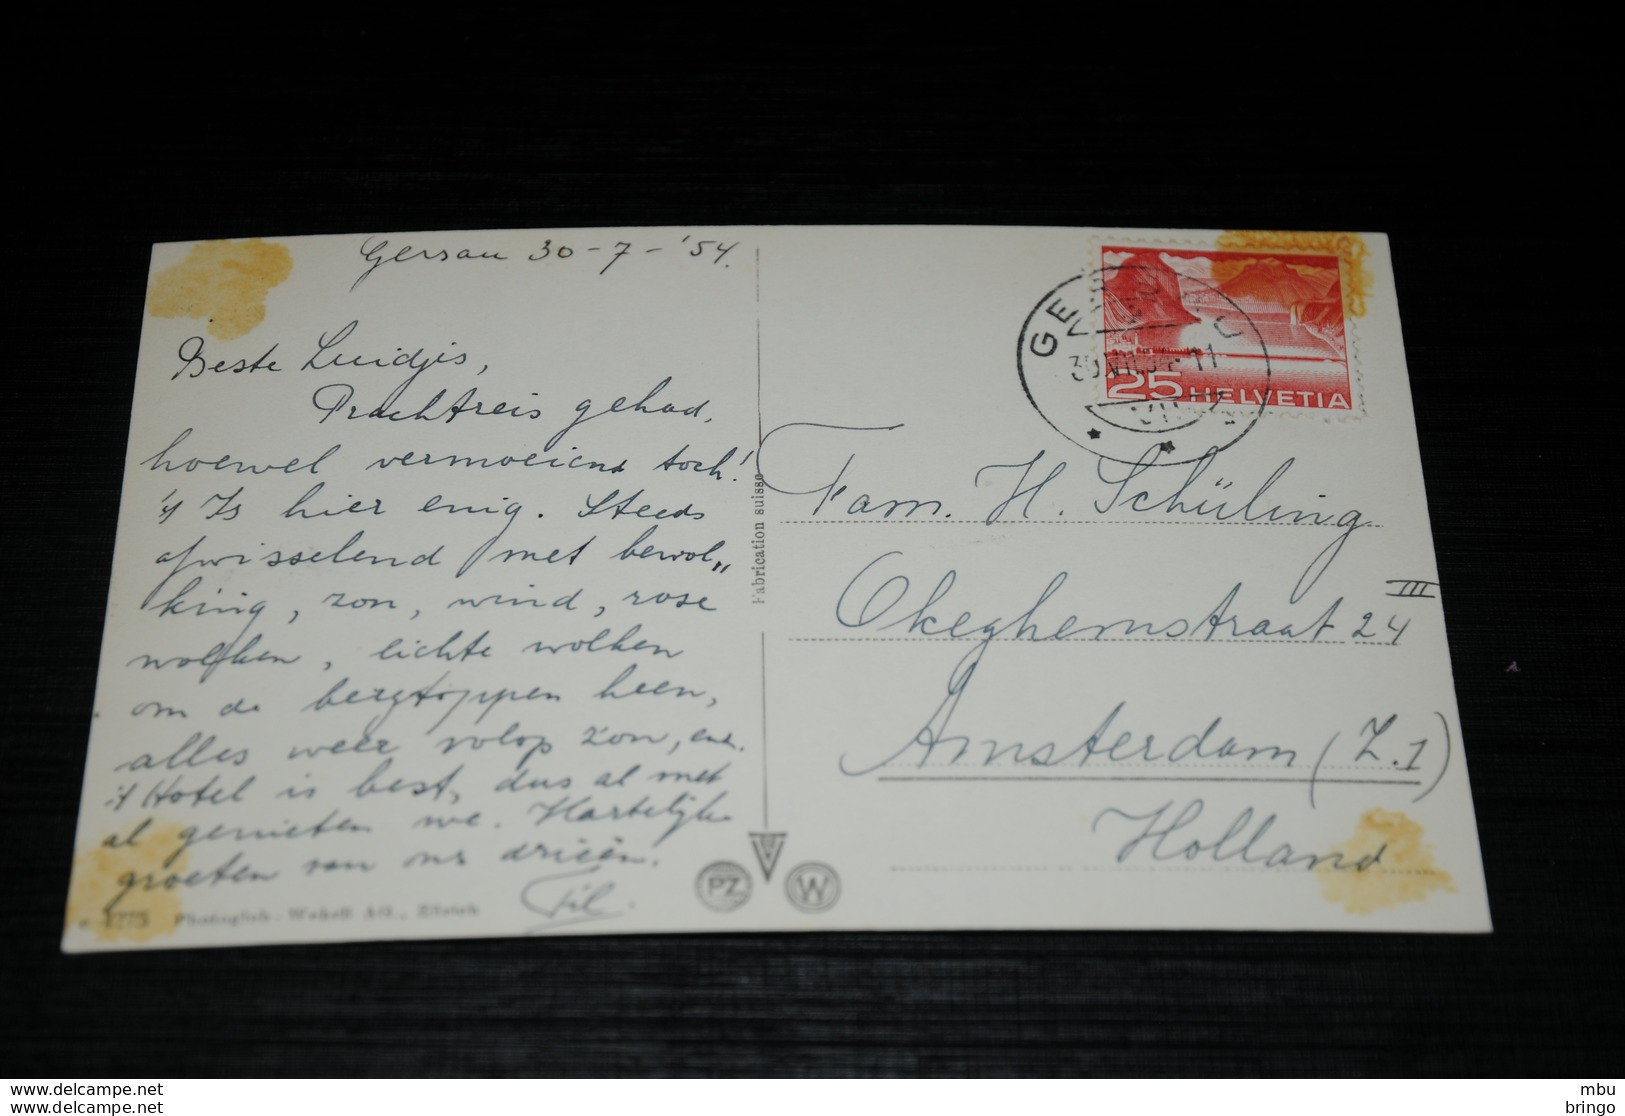 Gersau 30-7-'54.
Beste Luidjis,
Prachtreis gehad,
hoewel vermoeiend toch!
't Is hier enig. Steeds
afwisselend met bewol„
king, zon, wind, rose
wolken, lichte wolken
om de bergtoppen heen,
alles weer volop zon, enz.
't Hotel is best, dus al met
al genieten we. Hartelijke
groeten van ons drieën.
Fil.
1775 Photoglob-Wehrli AG., Zürich
Fabrication suisse
PZ
W
GERSAU
30.VII.54-11
25 HELVETIA
Fam. H. Schüling
Okeghemstraat 24 III
Amsterdam (Z.1)
Holland
www.delcampe.net
www.delcampe.net
mbu
bringo